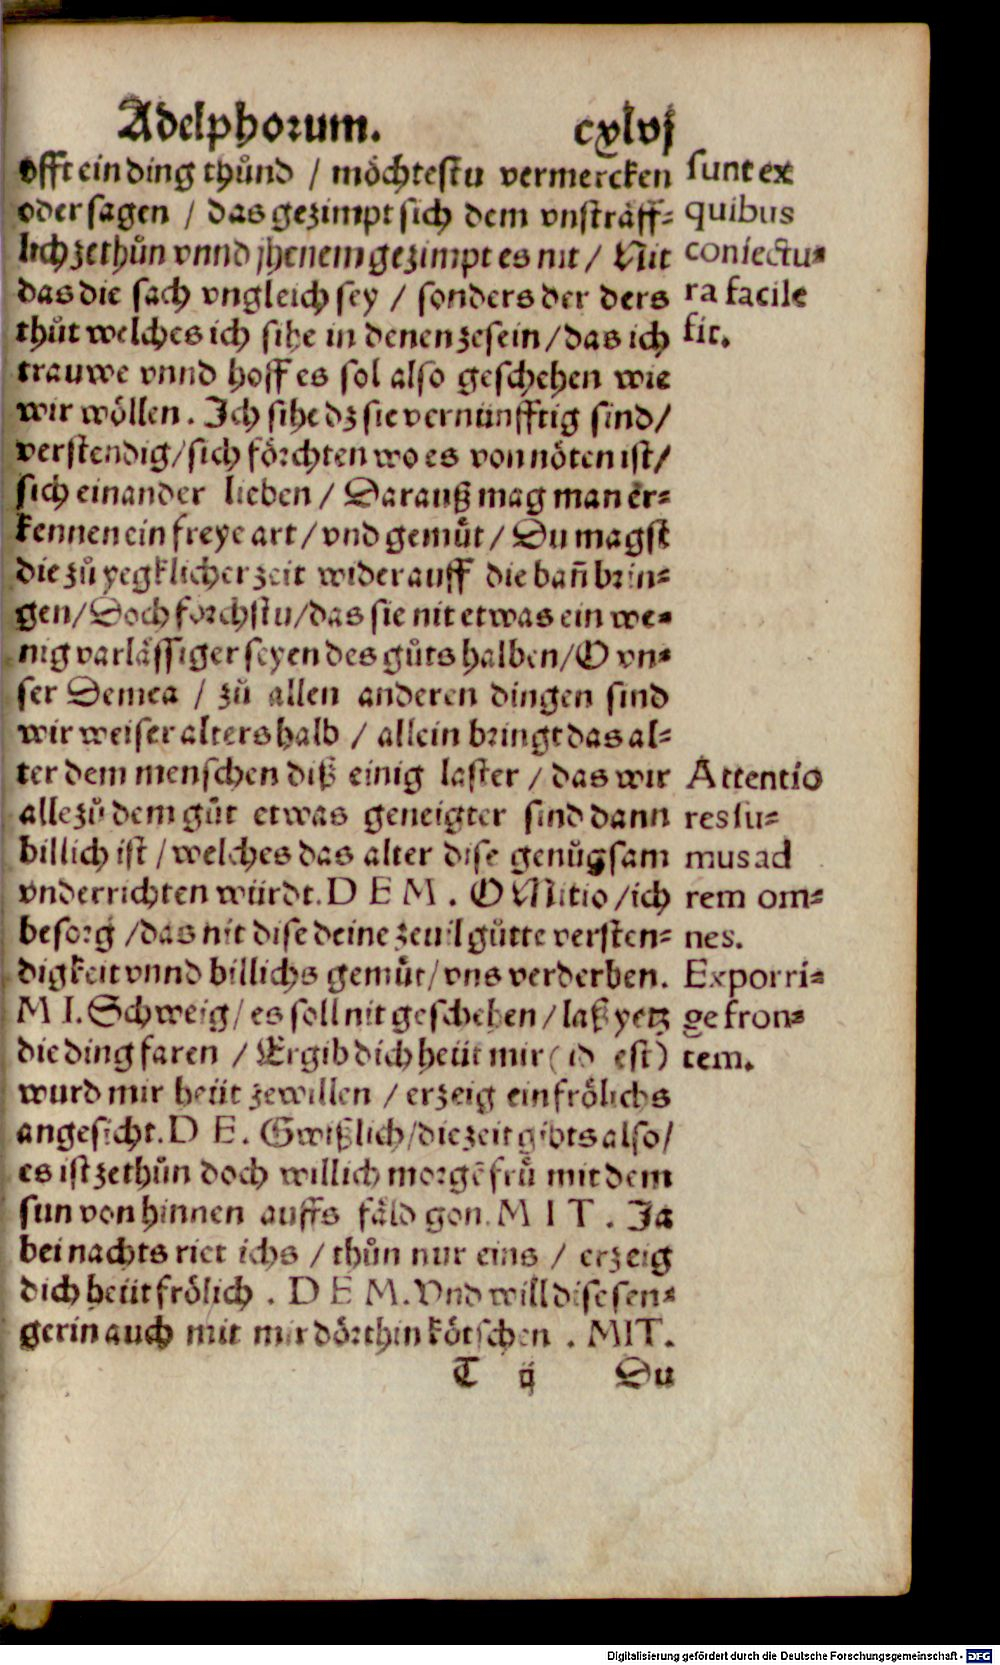 Adelphorum. cxlvj
offt ein ding thůnd / möchtestu vermercken
oder sagen / das gezimpt sich dem vnsträff⸗
lich zethůn vnnd jhenem gezimpt es nit / Nit
das die sach vngleich sey / sonders der ders
thůt welches ich sihe in denen zesein / das ich
trauwe vnnd hoff es sol also geschehen wie
wir wöllen. Ich sihe dz sie vernünfftig sind /
verstendig / sich förchten wo es von nöten ist /
sich einander lieben / Darauß mag man er⸗
kennen ein freye art / vnd gemůt / Du magst
die zů yegklicher zeit wider auff die bañ brin⸗
gen / Doch förchstu / das sie nit etwas ein we⸗
nig varlässiger seyen des gůts halben / O vn⸗
ser Demea / zů allen anderen dingen sind
wir weiser alters halb / allein bringt das al⸗
ter dem menschen diß einig laster / das wir
alle zů dem gůt etwas geneigter sind dann
billich ist / welches das alter dise genůgsam
vnderrichten würdt. DEM. O Mitio / ich
besorg / das nit dise deine zeuil gůtte versten⸗
digkeit vnnd billichs gemůt / vns verderben.
MI. Schweig / es soll nit geschehen / laß yetz
die ding faren / Ergib dich heüt mir (id est)
wurd mir heüt zewillen / erzeig ein frölichs
angesicht. DE. Gwißlich / die zeit gibts also /
es ist zethůn doch will ich morgē frů mit dem
sun von hinnen auffs fäld gon. MIT. Ja
bei nachts riet ichs / thůn nur eins / erzeig
dich heüt frölich. DEM. Vnd will dise sen⸗
gerin auch mit mir dörthin kötschen. MIT.
T ij Du
sunt ex
quibus
coniectu⸗
ra facile
fit.
Attentio
res su⸗
mus ad
rem om⸗
nes.
Exporri⸗
ge fron⸗
tem.
Digitalisierung gefördert durch die Deutsche Forschungsgemeinschaft - DFG